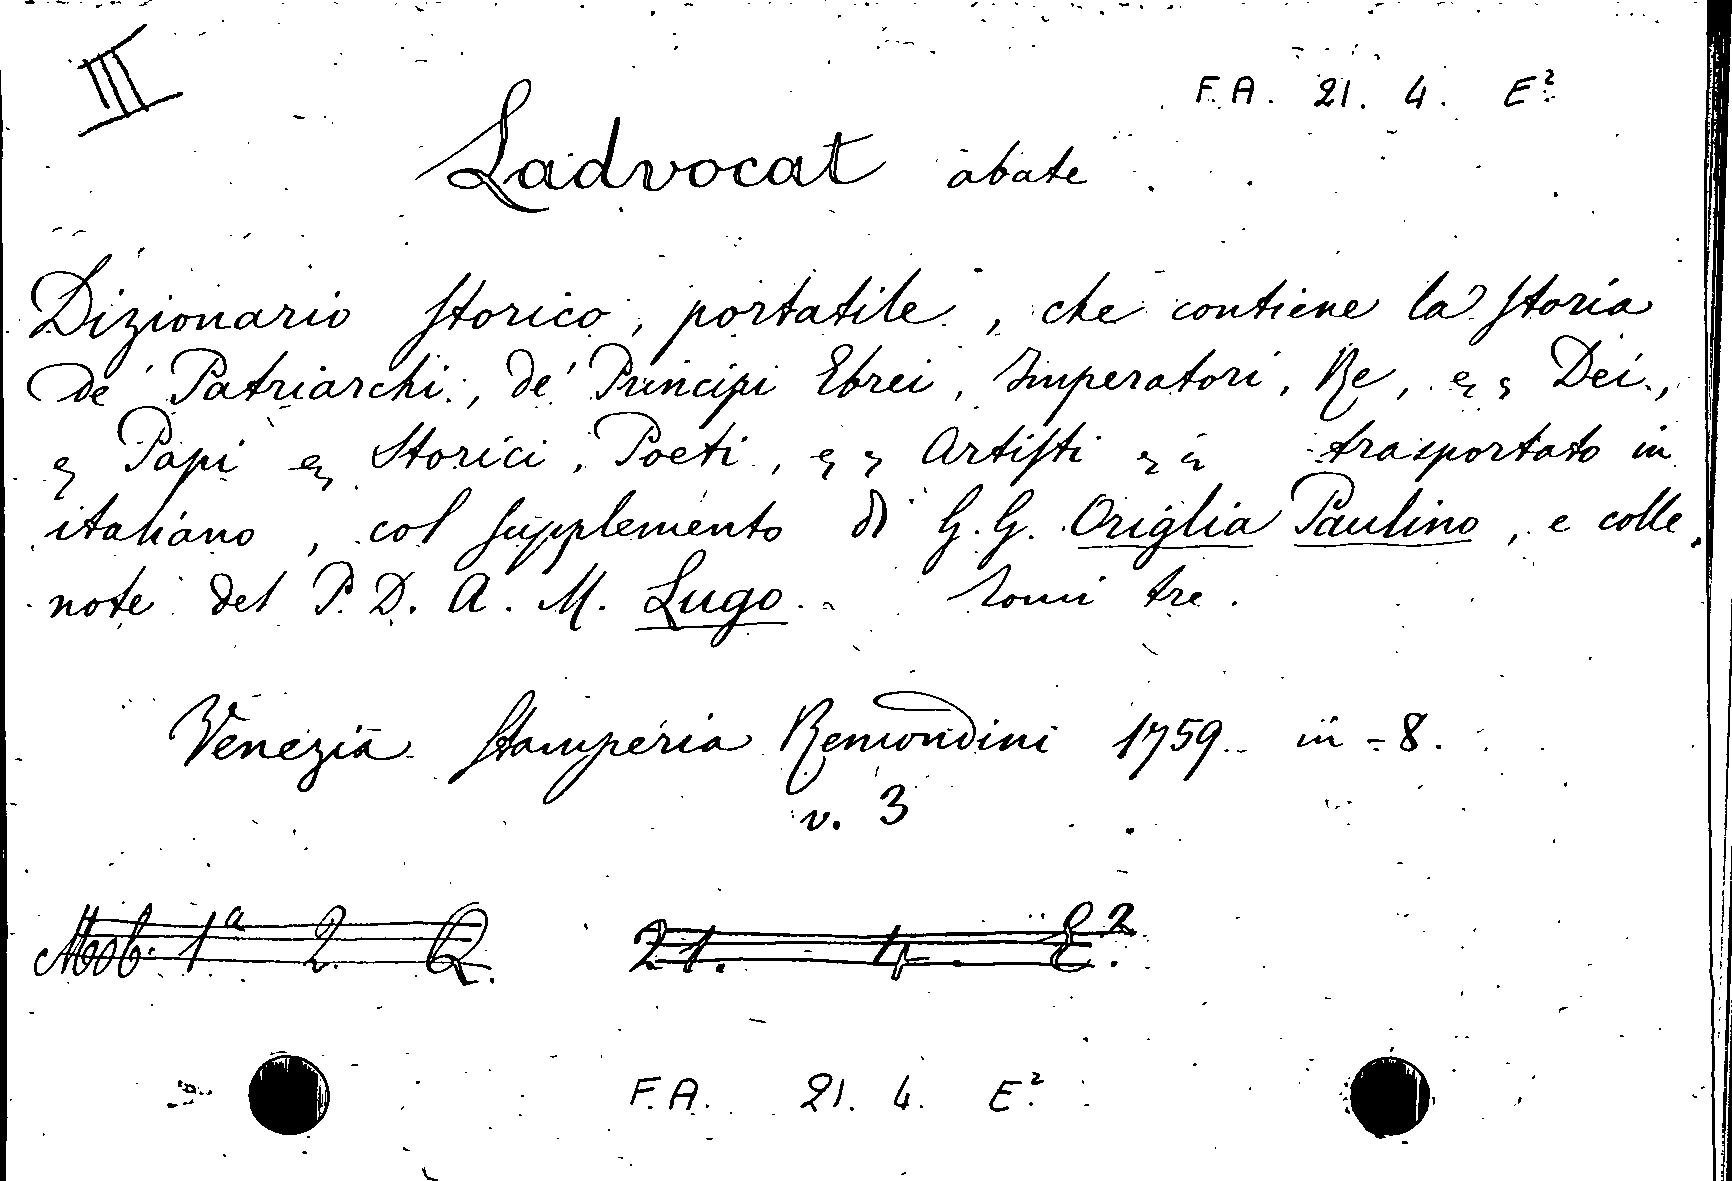 III
F.A. 21. 4. E²
Ladvocat abate
Dizionario storico, portatile, che contiene la storia
de' Patriarchi, de' Principi Ebrei, Imperatori, Re, e, e, Dei,
e, Papi e, Storici, Poeti, e, e, Artisti e, e, trasportato in
italiano, col supplemento di G. G. Origlia Paulino, e colle
note del P. D. A. M. Lugo. Tomi tre.
Venezia Stamperia Remondini 1759. in-8.
v. 3
Mob. 1ª 2. Q. 21. 4. E².
F.A. 21. 4. E²